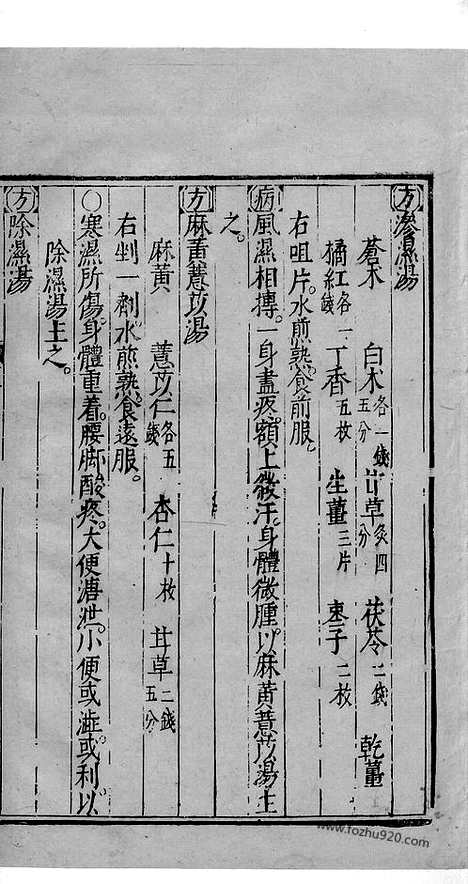 方滲濕湯
蒼术　白术各一錢五分　甘草炙四分　茯苓二錢　乾薑
橘紅各一錢　丁香五枚　生薑三片　枣子二枚
右㕮片水煎熟食前服
病風濕相摶。一身盡疼。額上發汗。身體微腫。以麻黄薏苡湯主
之。
方麻黄薏苡湯
麻黄　薏苡仁各五錢　杏仁十枚　甘草二錢五分
右剉一劑水煎熟食遠服。
○寒濕所傷。身體重着。腰脚酸疼。大便溏泄。小便或澁。或利。以
除濕湯主之。
方除濕湯
www.fozhu920.com